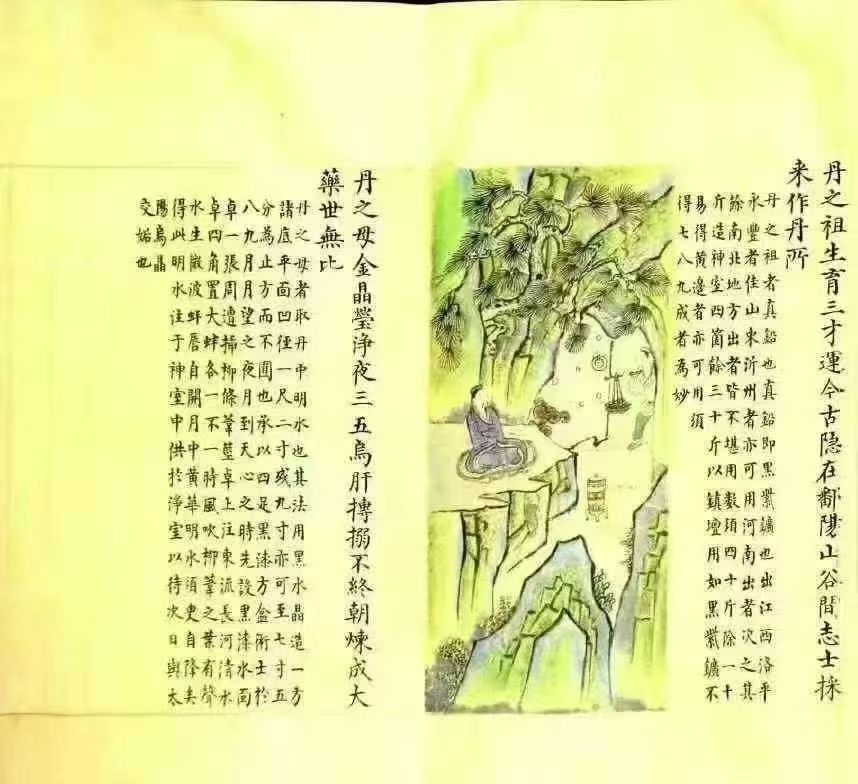 丹之祖生育三才運今古隐在鄱陽山谷間志士採
来作丹所
丹之祖者真鉛也真鉛即黑鸑鑛也出江西洛平
永豐者佳山東沂州者亦可用河南出者次之其
餘南北地方出者皆不堪用數須四十斤除一十
斤造神室四箇餘三十斤以鎮壇用如黑鸑鑛不
易得黄邊者亦可用須
得七八九成者為妙
丹之母金晶瑩浄夜三五烏肝摶搦不終朝煉成大
藥世無比
丹之母者取丹中明水也其法用黑水晶造一方
諸底平面凹径一尺二寸或九寸亦可至七寸五
分為止方而不圓也承以四足黑漆方盒術士於
八九月月望之夜月到天心之時先設黑漆水面
卓一張周邊掃柳條葦葉卓上注東流長河清水
卓四角置大蚌各一不一時風吹柳葦之葉有聲
水生微波蚌唇自開月中黄華明水須臾自降矣
得此明水注于神室中供於浄室以待次日與太
陽烏晶
交姤也